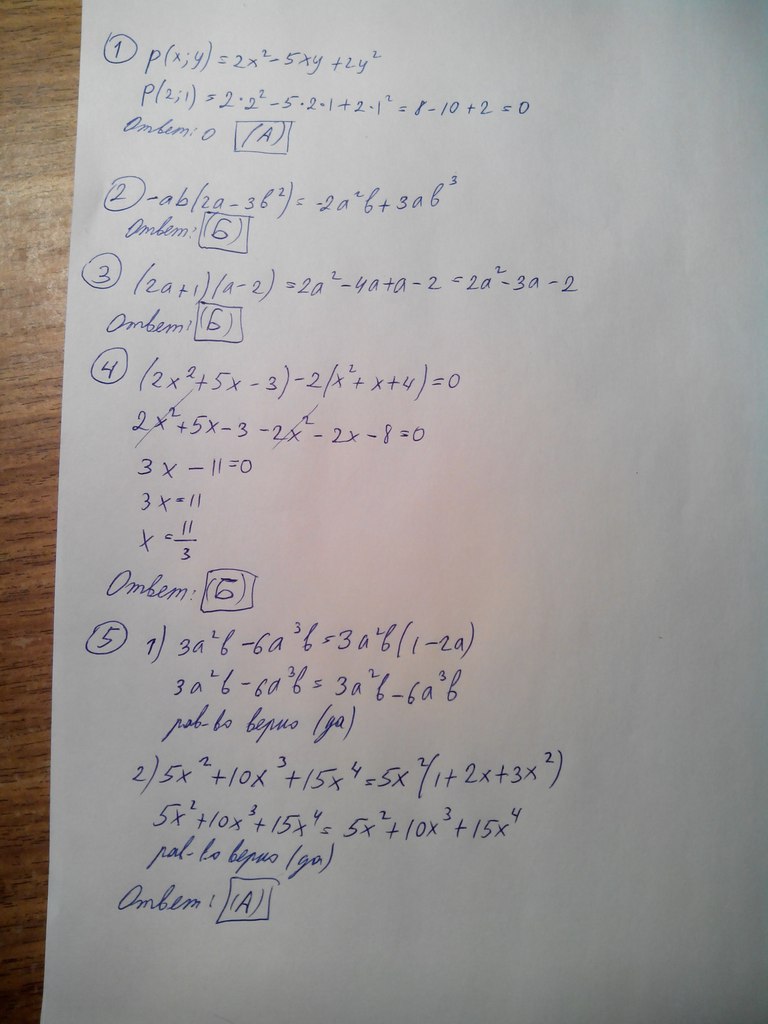 1 p(x;y) = 2x² - 5xy + 2y²
p(2;1) = 2·2² - 5·2·1 + 2·1² = 8 - 10 + 2 = 0
Ответ: 0 (А)
2 -ab(2a - 3b²) = -2a²b + 3ab³
Ответ: (Б)
3 (2a+1)(a-2) = 2a² - 4a + a - 2 = 2a² - 3a - 2
Ответ: (Б)
4 (2x² + 5x - 3) - 2(x² + x + 4) = 0
2x² + 5x - 3 - 2x² - 2x - 8 = 0
3x - 11 = 0
3x = 11
x = 11/3
Ответ: (Б)
5 1) 3a²b - 6a³b = 3a²b(1 - 2a)
3a²b - 6a³b = 3a²b - 6a³b
рав-во верно (да)
2) 5x² + 10x³ + 15x⁴ = 5x²(1 + 2x + 3x²)
5x² + 10x³ + 15x⁴ = 5x² + 10x³ + 15x⁴
рав-во верно (да)
Ответ: (А)